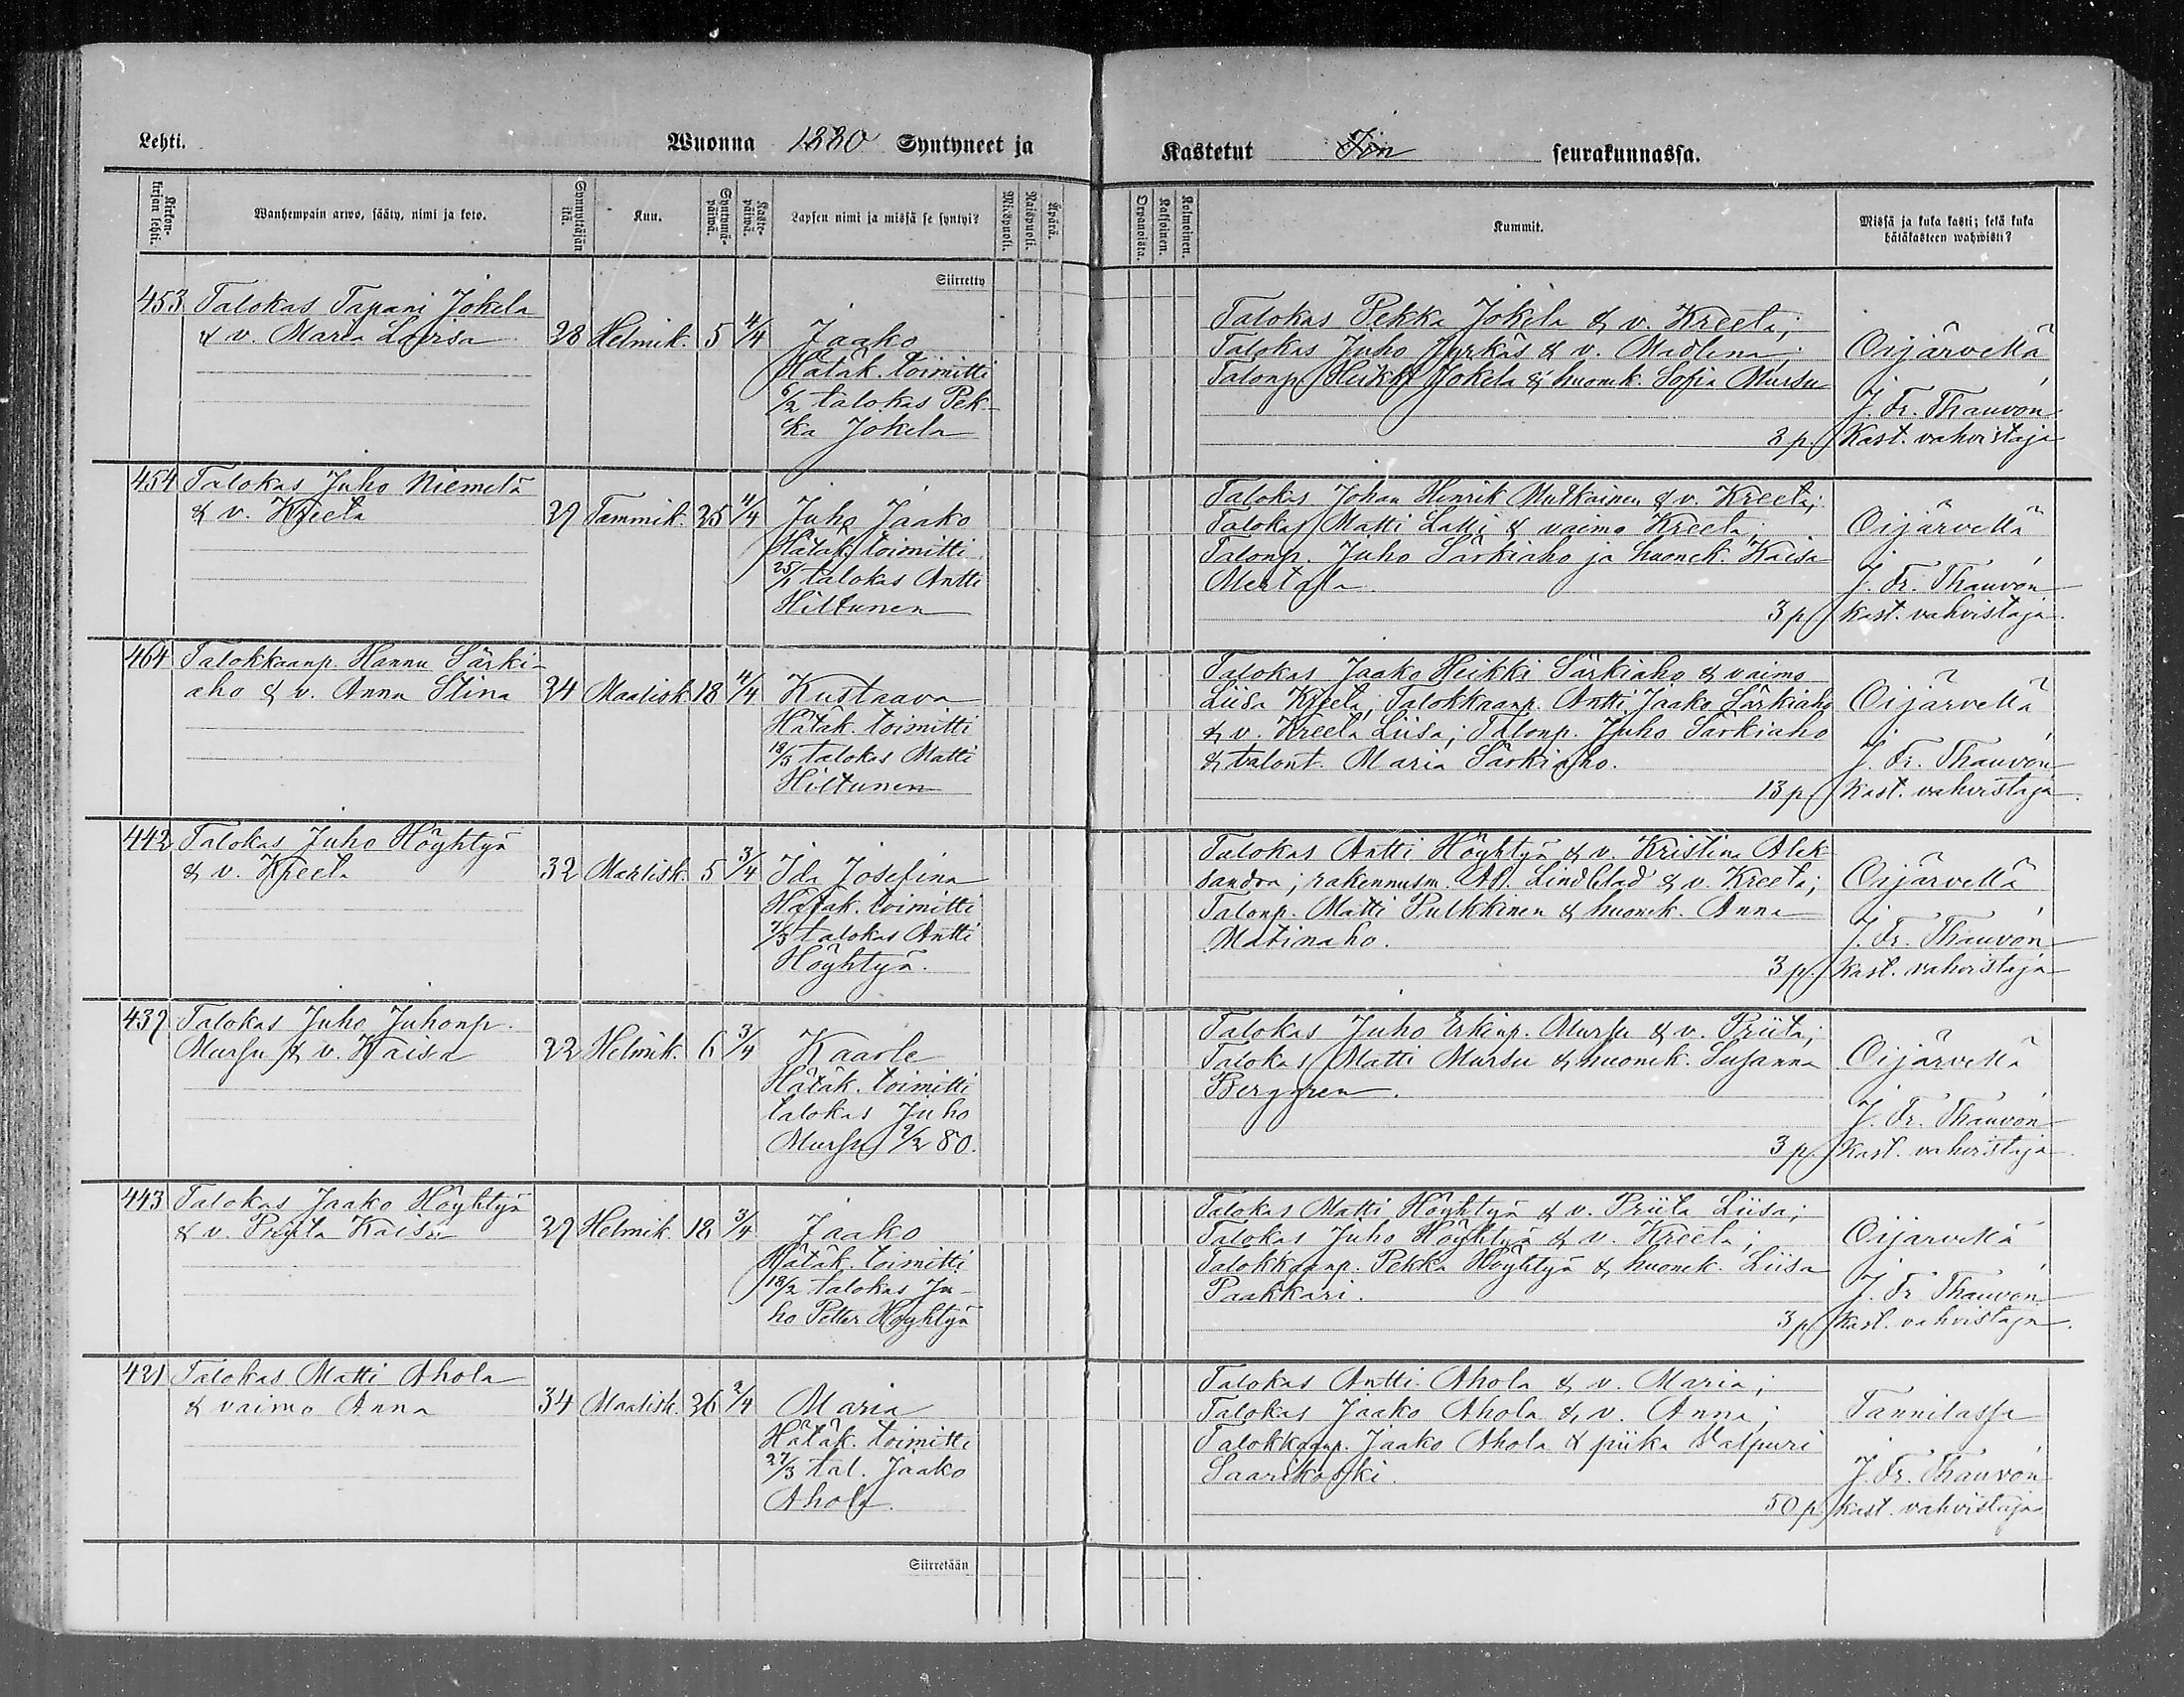 Lehti.
Wuonna 1880 Syntyneet ja
Kastetut Iin seurakunnassa.
Wanhempain arwo, sääty, nimi ja koto.
Synnyttäjän ikä.
Kuu.
Syntymä-päiwä.
Kaste-päiwä.
Lapsen nimi ja missä se syntyi?
Miespuoli.
Waispuoli.
Äpärä.
Orpanoista.
Kaksoinen.
Kolmoinen.
Kummit.
Missä ja kuka kasti; sekä kuka
hätäkasteen wahwisti?
Siirretty
453 Talokas Tapani Jokela
& v. Maria Loviisa 28 Helmik. 5 4/4 Jaako
Hätäk. toimitti
6/2 talokas Pek-
ka Jokela
Talokas Pekka Jokela & v. Kreeta;
Talokas Juho Jyrkäs & v. Madlena;
Talonp. Heikki Jokela & huonek. Sofia Mursu
3 p.
Oijärvellä
J. Fr. Thauvón
Kast. vahvistaja
454 Talokas Juho Niemelä
& v. Kreeta 27 Tammik. 25 4/4 Juho Jaako
Hätäk. toimitti
25/1 talokas Antti
Hiltunen
Talokas Johan Henrik Mutkainen & v. Kreeta;
Talokas Matti Lalli & vaimo Kreeta;
Talonp. Juho Särkiaho ja huonek. Kaisa
Mertala.
3 p
Oijärvellä
J. Fr. Thauvón
Kast. vahvistaja.
464 Talokkaanp. Hannu Särki-
aho & v. Anna Stina 24 Maalisk. 18 4/4 Kustaava
Hätäk. toimitti
18/3 talokas Matti
Hiltunen
Talokas Jaako Heikki Särkiaho & vaimo
Liisa Kreeta; Talokkaanp. Antti Jaako Särkiaho
& v. Kreeta Liisa; Talonp. Juho Särkiaho
& talont. Maria Särkiaho.
13 p
Oijärvellä
J. Fr. Thauvón
Kast. vahvistaja.
442 Talokas Juho Höyhtyä
& v. Kreeta 32 Maalisk. 5 3/4 Ida Josefina
Hätäk. toimitti
7/3 talokas Antti
Höyhtyä.
Talokas Antti Höyhtyä & v. Kristina Alek-
sandra; rakennusm. Ad. Lindblad & v. Kreeta;
Talonp. Matti Pulkkinen & huonek. Anna
Matinaho.
3 p.
Oijärvellä
J. Fr. Thauvón
Kast. vahvistaja
437 Talokas Juho Juhonp.
Mursu & v. Kaisa 22 Helmik. 6 3/4 Kaarle
Hätäk. toimitti
talokas Juho
Mursu 9/2 80.
Talokas Juho Erkinp. Mursu & v. Priita;
Talokas Matti Mursu & huonek. Susanna
Berggren.
3 p.
Oijärvellä
J. Fr. Thauvón
Kast. vahvistaja.
443 Talokas Jaako Höyhtyä
& v. Priita Kaisa 27 Helmik. 18 3/4 Jaako
Hätäk. toimitti
18/2 talokas Ju-
ho Petter Höyhtyä
Talokas Matti Höyhtyä & v. Priita Liisa;
Talokas Juho Höyhtyä & v. Kreeta;
Talokkaanp. Pekka Höyhtyä & huonek. Liisa
Paakkari.
3 p
Oijärvellä
J. Fr. Thauvón
Kast. vahvistaja.
421 Talokas Matti Ahola
& vaimo Anna 34 Maalisk. 26 2/4 Maria
Hätäk. toimitti
27/3 tal. Jaako
Ahola.
Talokas Antti Ahola & v. Maria;
Talokas Jaako Ahola & v. Anna;
Talokkaanp. Jaako Ahola & piika Valpuri
Saarikoski.
50 p.
Tannilassa
J. Fr. Thauvón
Kast. vahvistaja
Siirretään